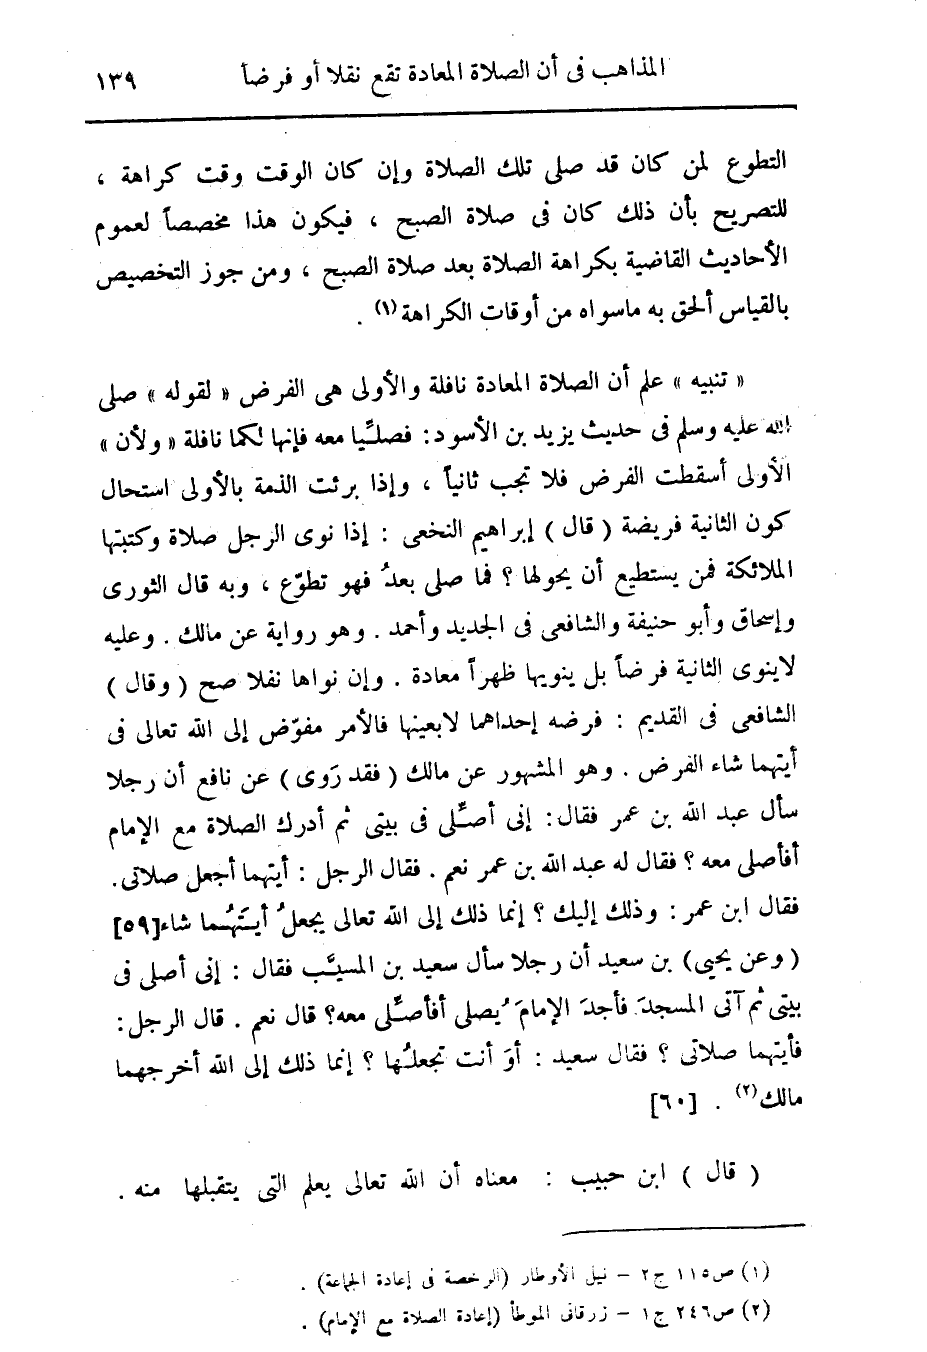 المذاهب فى أن الصلاة المعادة تقع نفلا أو فرضاً ١٣٩
التطوع لمن كان قد صلى تلك الصلاة وإن كان الوقت وقت كراهة ،
للتصريح بأن ذلك كان فى صلاة الصبح ، فيكون هذا مخصصاً لعموم
الأحاديث القاضية بكراهة الصلاة بعد صلاة الصبح ، ومن جوز التخصيص
بالقياس ألحق به ماسواه من أوقات الكراهة (١) .
« تنبيه » علم أن الصلاة المعادة نافلة والأولى هى الفرض « لقوله » صلى
الله عليه وسلم فى حديث يزيد بن الأسود : فصلِّيا معه فإنها لكما نافلة « ولأن »
الأولى أسقطت الفرض فلا تجب ثانياً ، وإذا برئت الذمة بالأولى استحال
كون الثانية فريضة ( قال ) إبراهيم النخعى : إذا نوى الرجل صلاة وكتبتها
الملائكة فمن يستطيع أن يحولها ؟ فما صلى بعدُ فهو تطوّع ، وبه قال الثورى
وإسحاق وأبو حنيفة والشافعى فى الجديد وأحمد . وهو رواية عن مالك . وعليه
لاينوى الثانية فرضاً بل ينويها ظهراً معادة . وإن نواها نفلا صح ( وقال )
الشافعى فى القديم : فرضه إحداهما لابعينها فالأمر مفوّض إلى الله تعالى فى
أيتهما شاء الفرض . وهو المشهور عن مالك ( فقد رَوى ) عن نافع أن رجلا
سأل عبد الله بن عمر فقال : إنى أصلِّى فى بيتى ثم أدرك الصلاة مع الإمام
أفأصلى معه ؟ فقال له عبد الله بن عمر نعم . فقال الرجل : أيتهما أجعل صلاتى .
فقال ابن عمر : وذلك إليك ؟ إنما ذلك إلى الله تعالى يجعلُ أيتَهُما شاء [٥٩]
( وعن يحيى ) بن سعيد أن رجلا سأل سعيد بن المسيَّب فقال : إنى أصلى فى
بيتى ثم آتى المسجدَ فأجدَ الإمامَ يُصلى أفأصلِّى معه؟ قال نعم . قال الرجل :
فأيتهما صلاتى ؟ فقال سعيد : أوَ أنت تجعلُها ؟ إنما ذلك إلى الله أخرجهما
مالك (٢) . [٦٠]
( قال ) ابن حبيب : معناه أن الله تعالى يعلم التى يتقبلها منه .
(١) ص١١٥ ج٢ – نيل الأوطار (الرخصة فى إعادة الجماعة) .
(٢) ص٢٤٦ ج١ – زرقانى الموطأ (إعادة الصلاة مع الإمام) .